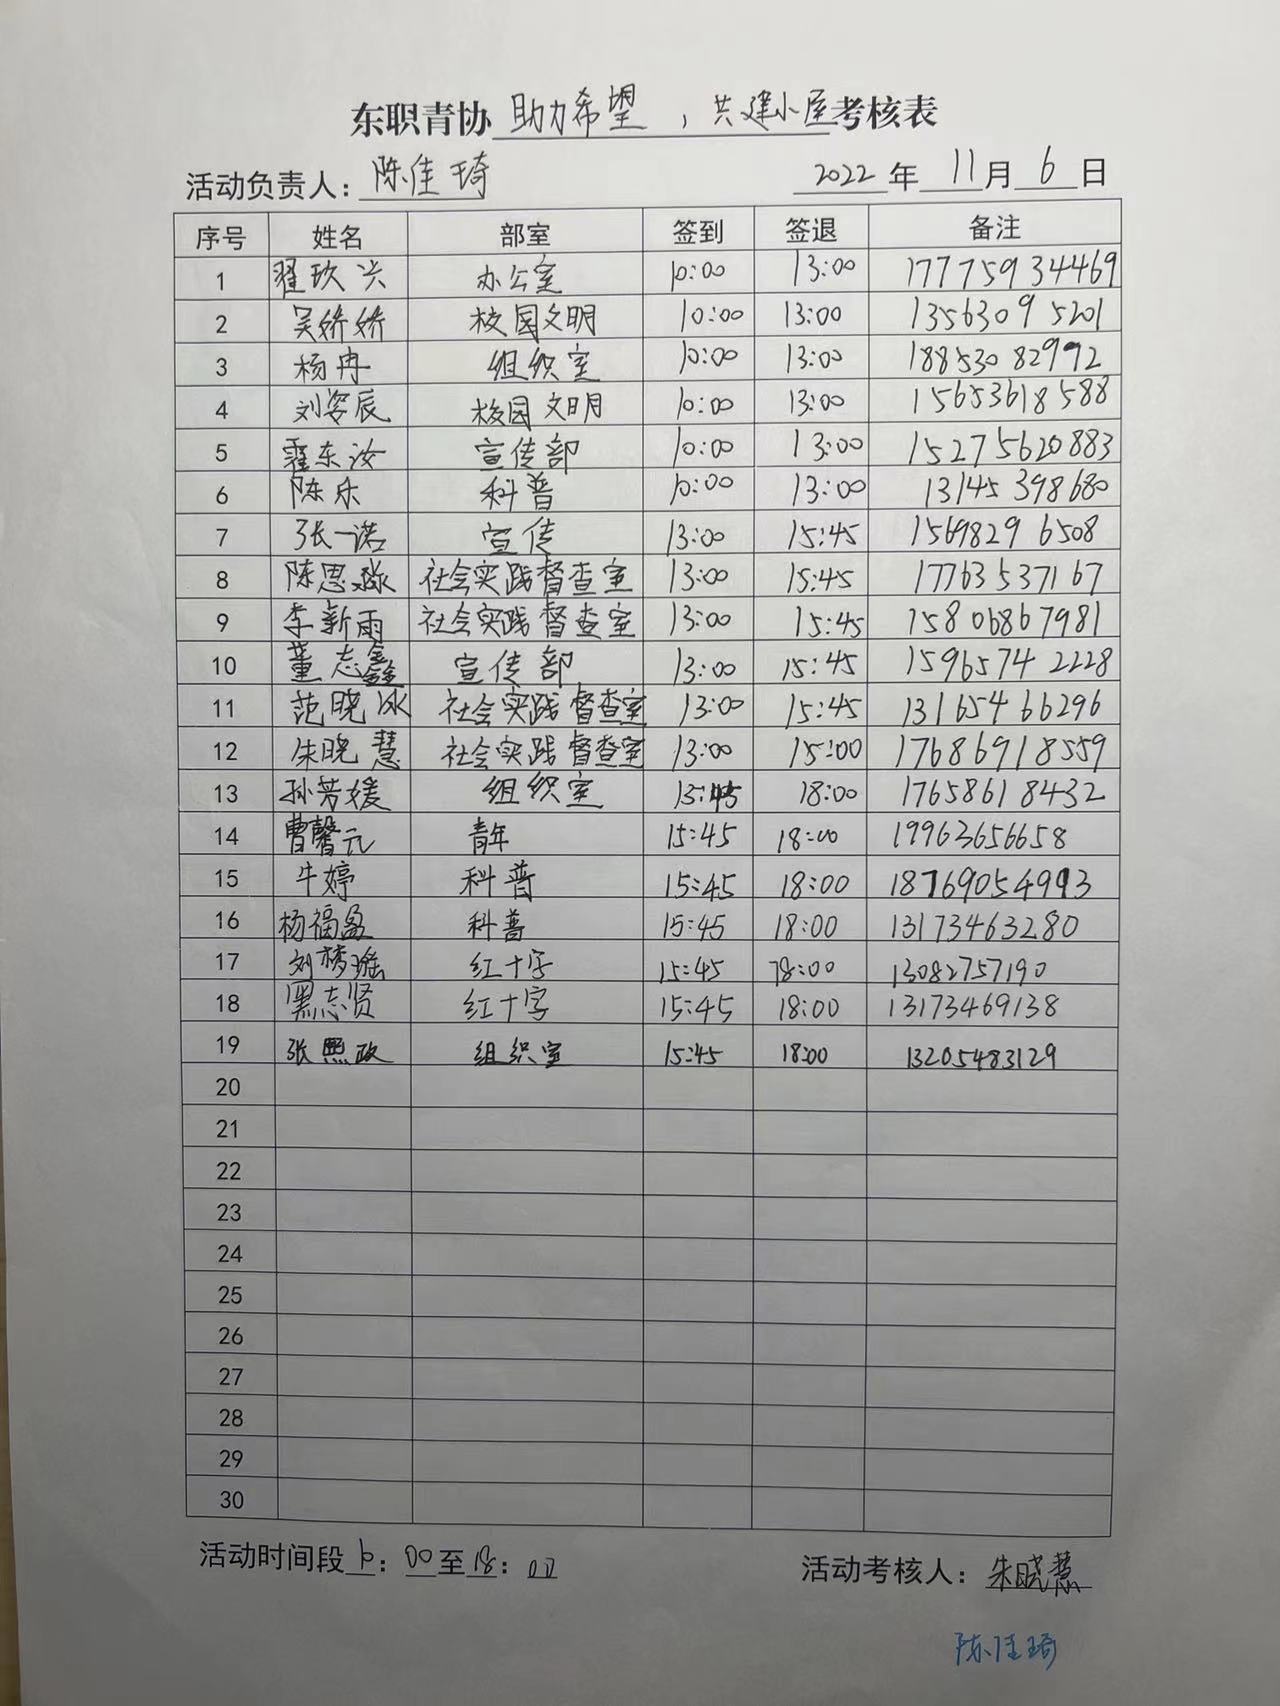 东职青协 助力希望，共建小屋 考核表
活动负责人：陈佳琦 2022 年 11 月 6 日
序号 姓名 部室 签到 签退 备注
1 翟玖兴 办公室 10:00 13:00 17775934469
2 吴娇娇 校园文明 10:00 13:00 13563095201
3 杨冉 组织室 10:00 13:00 18853082992
4 刘姿辰 校园文明 10:00 13:00 15653618588
5 霍东汝 宣传部 10:00 13:00 15275620883
6 陈乐 科普 10:00 13:00 13145398680
7 张一诺 宣传 13:00 15:45 15698296508
8 陈思淼 社会实践督查室 13:00 15:45 17763537167
9 李新雨 社会实践督查室 13:00 15:45 15806867981
10 董志鑫 宣传部 13:00 15:45 15965742228
11 范晓冰 社会实践督查室 13:00 15:45 13165466296
12 朱晓慧 社会实践督查室 13:00 15:00 17686918559
13 孙芳媛 组织室 15:45 18:00 17658618432
14 曹馨元 青年 15:45 18:00 19963656658
15 牛婷 科普 15:45 18:00 18769054993
16 杨福盈 科普 15:45 18:00 13173463280
17 刘梦瑶 红十字 15:45 18:00 13082757190
18 黑志贤 红十字 15:45 18:00 13173469138
19 张熙政 组织室 15:45 18:00 13205483129
20
21
22
23
24
25
26
27
28
29
30
活动时间段 10：00 至 18：00 活动考核人：朱晓慧
陈佳琦